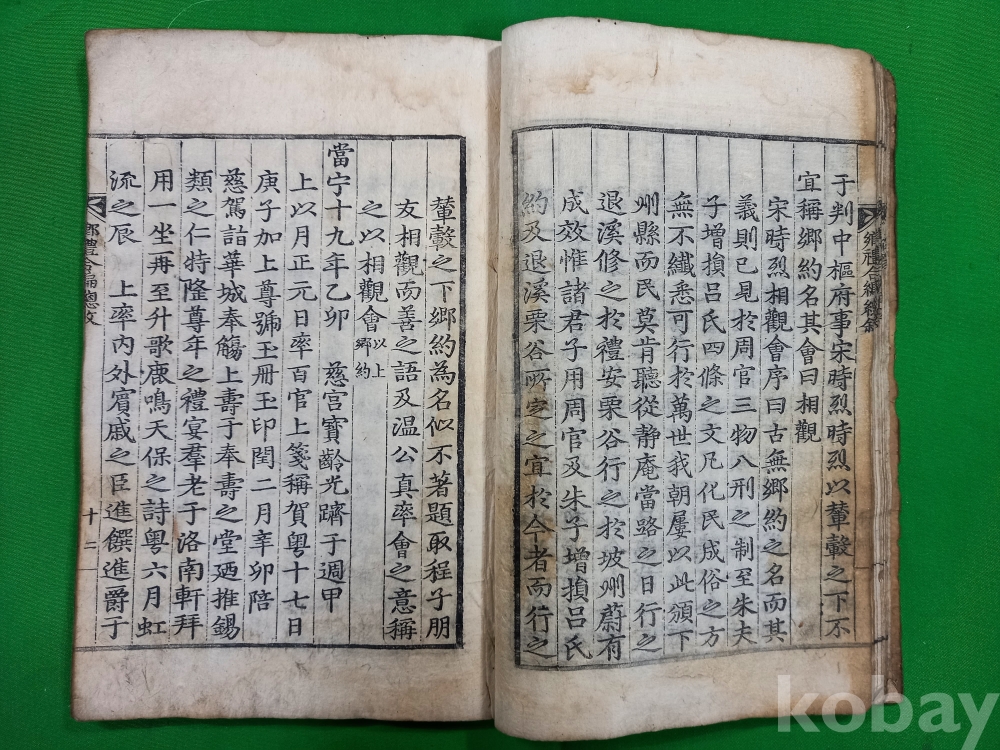 于判中樞府事宋時烈時烈以輦轂之下不
宜稱鄉約名其會曰相觀
宋時烈相觀會序曰古無鄉約之名而其
義則已見於周官三物八刑之制至朱夫
子增損呂氏四條之文凡化民成俗之方
無不纖悉可行於萬世我朝屢以此頒下
州縣而民莫肯聽從静庵當路之日行之
退溪修之於禮安栗谷行之於坡州蔚有
成效惟諸君子用周官及朱子增損呂氏
約及退溪栗谷所定之宜於今者而行之
輦轂之下鄉約為名似不著題取程子朋
友相觀而善之語及温公真率會之意稱
之以相觀會以上鄉約
當宁十九年乙卯 慈宮寶齡光躋于週甲
上以月正元日率百官上箋稱賀粤十七日
庚子加上尊號玉冊玉印閏二月辛卯陪
慈駕詣華城奉觴上壽于奉壽之堂廼推錫
類之仁特隆尊年之禮宴羣老于洛南軒拜
用一坐再至升歌鹿鳴天保之詩粤六月虹
流之辰 上率內外賓戚之臣進饌進爵于
鄉禮合編總敘
十二
kobay